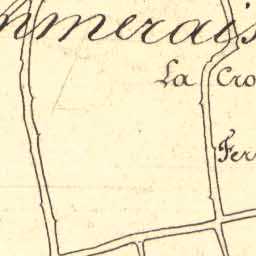 mmerais
La Cro
Fer